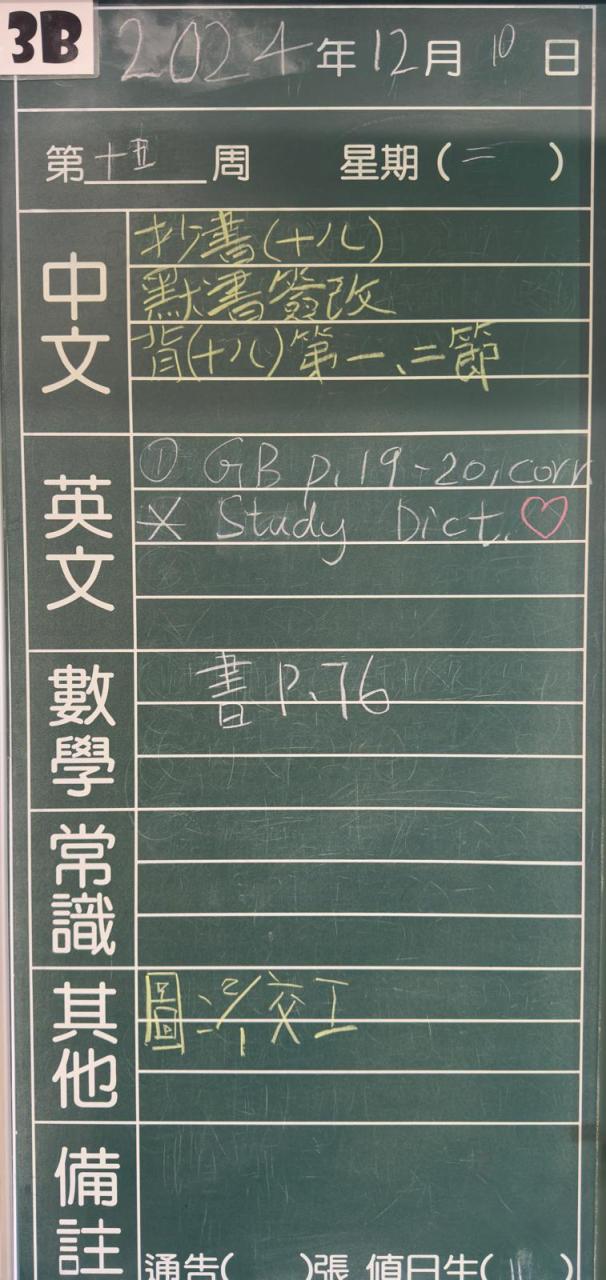 3B
2024年12月10日
第十五周 星期(二)
中文
抄書(十八)
默書簽改
背(十八)第一、二節
英文
① GB p.19-20,corr
* Study Dict. ♡
數學
書P.76
常識
其他
圖 交工
備註
通告( )張 值日生( )